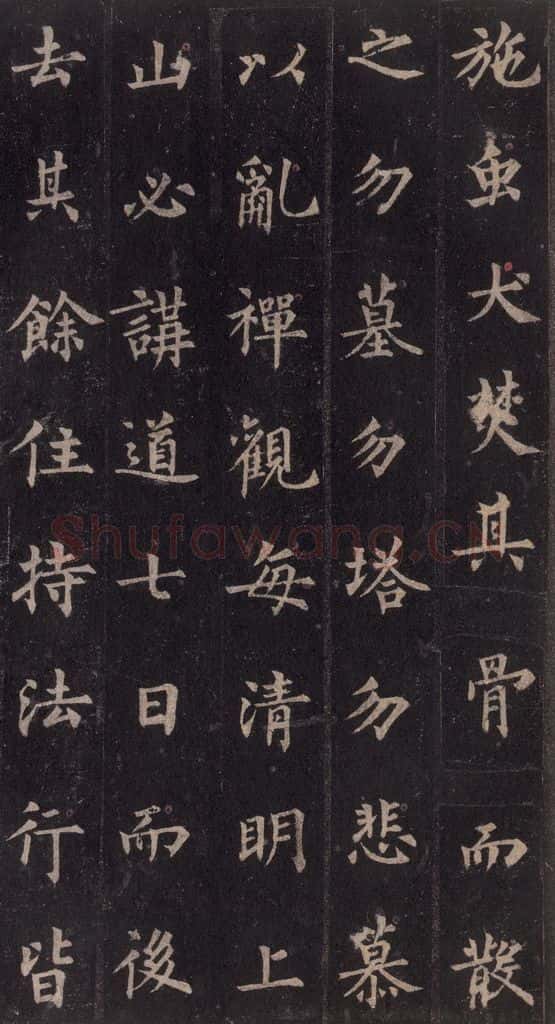 施虫犬焚其骨而散
之勿墓勿塔勿悲慕
以亂禪觀每清明上
山必講道七日而後
去其餘住持法行皆
Shufawang.CN